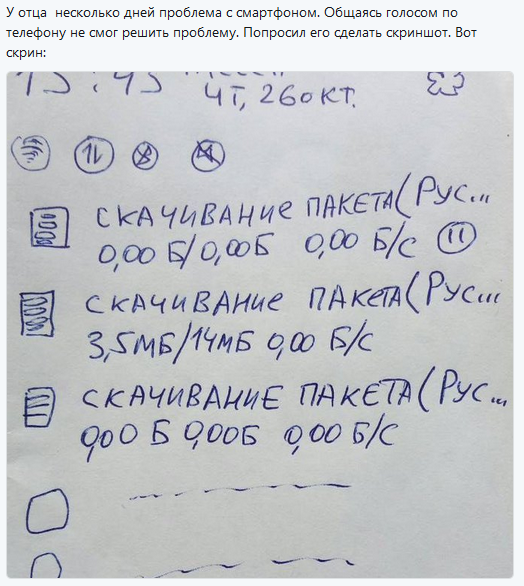 У отца несколько дней проблема с смартфоном. Общаясь голосом по
телефону не смог решить проблему. Попросил его сделать скриншот. Вот
скрин:
15:45
ЧТ, 26 ОКТ.
СКАЧИВАНИе ПАКЕТА(РУС...
0,00 Б/0,00Б 0,00 Б/С
СКАЧИВАНИе ПАКеТА(РУС...
3,5МБ/14МБ 0,00 Б/С
СКАЧИВАНИЕ ПАКЕТА(РУС...
0,00 Б 0,00Б 0,00 Б/С